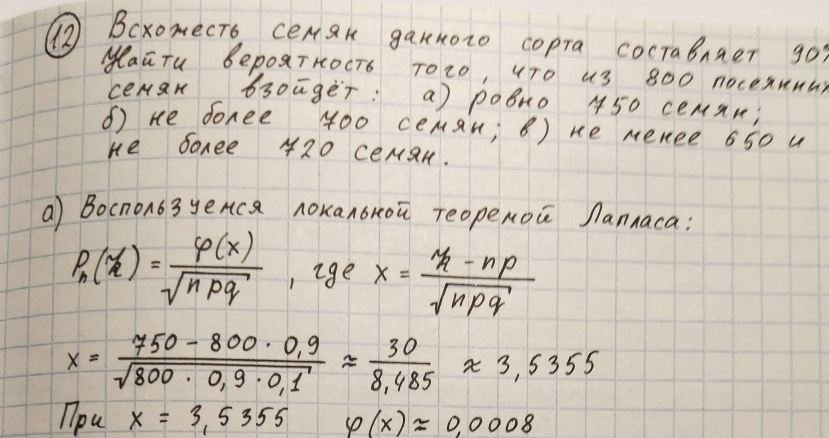 12 Всхожесть семян данного сорта составляет 90%
Найти вероятность того, что из 800 посеянных
семян взойдёт: а) ровно 750 семян;
б) не более 700 семян; в) не менее 650 и
не более 720 семян.
а) Воспользуемся локальной теоремой Лапласа:
Pn(k) = φ(x) / √npq , где x = k - np / √npq
x = 750 - 800 · 0,9 / √800 · 0,9 · 0,1 ≈ 30 / 8,485 ≈ 3,5355
При x = 3,5355 φ(x) ≈ 0,0008